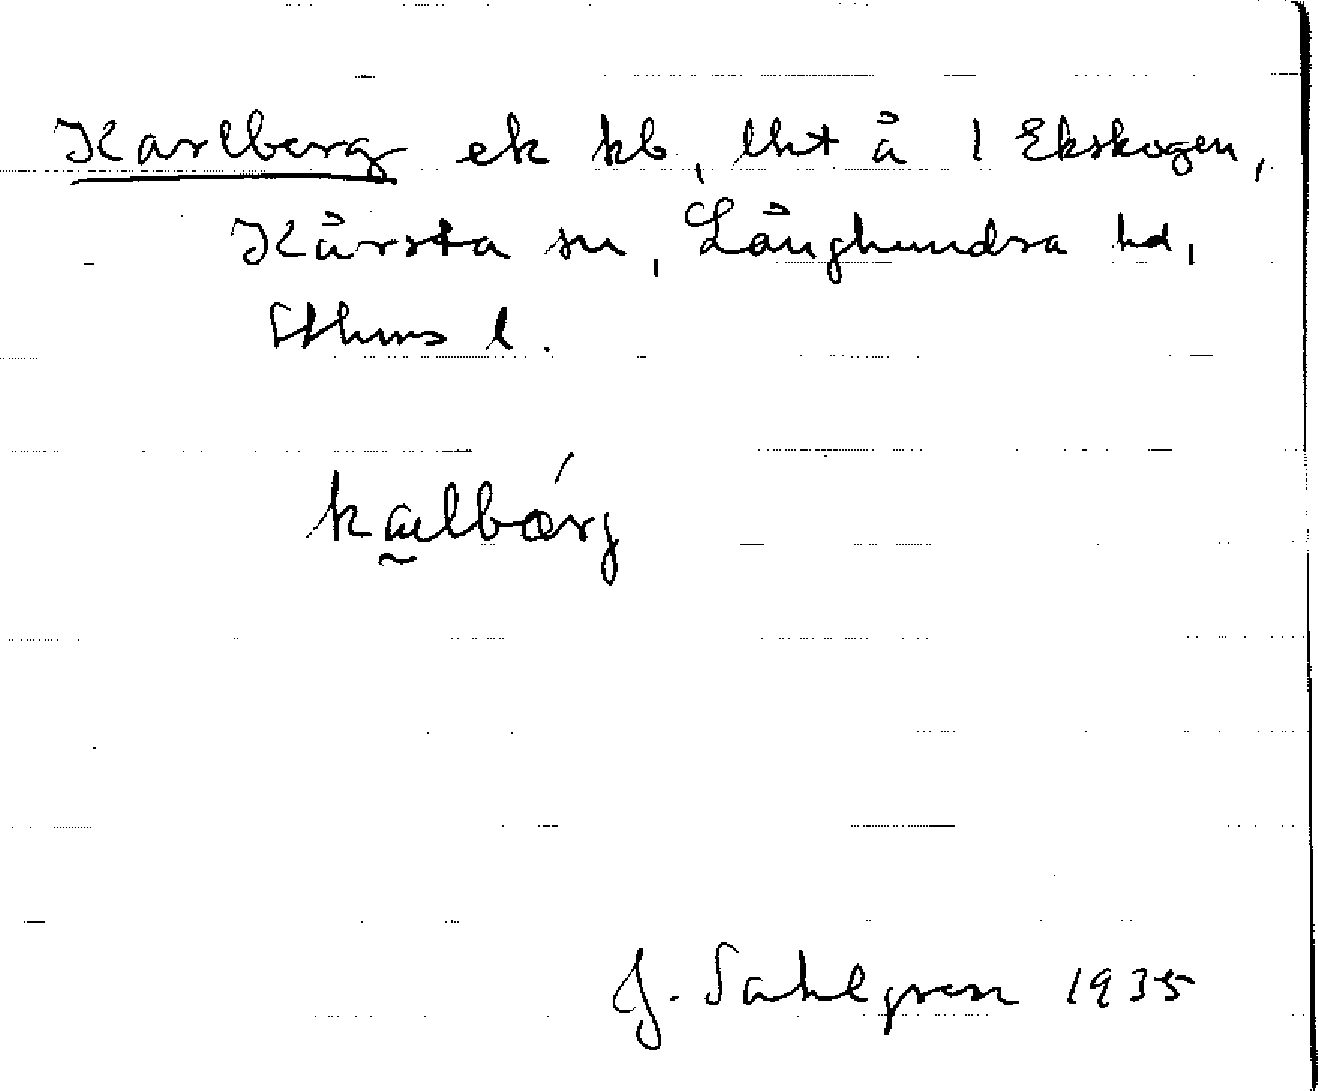 Karlberg ek kb, lht å 1 Ekskogen,
Kårsta sn, Långhundra hd,
Sthms l.
kalbǽrj
J. Sahlgren 1935